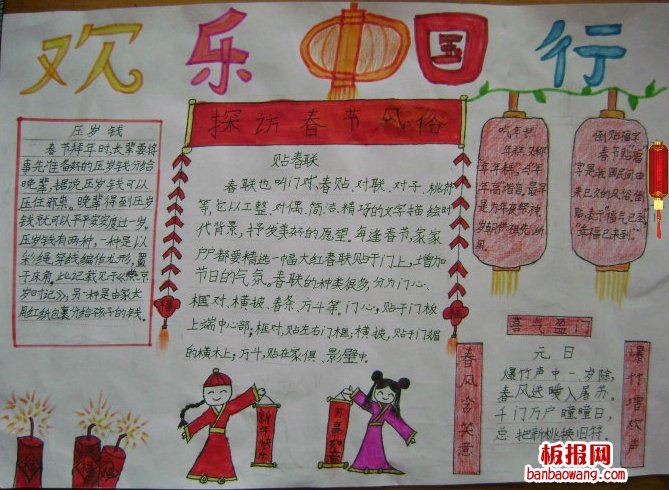 欢乐中国行
探访春节风俗
压岁钱
春节拜年时,长辈要将
事先准备好的压岁钱分给
晚辈,据说压岁钱可以
压住邪祟,晚辈得到压岁
钱就可以平平安安度过一岁。
压岁钱有两种,一种是以
彩绳穿线编作龙形,置
于床角,此记载见于《燕京
岁时记》;另一种是由家长
用红纸包裹分给孩子的钱。
贴春联
春联也叫门对、春贴、对联、对子、桃符
等,它以工整、对偶、简洁、精巧的文字描绘时
代背景,抒发美好的愿望。每逢春节,家家
户户都要精选一幅大红春联贴于门上,增加
节日的气氛。春联的种类很多,分为门心、
框对、横披、春条、斗斤等。门心,贴于门板
上端中心部;框对,贴左右门框;横披,贴于门媚
的横木上;斗斤,贴在家俱、影壁中。
吃年糕
年年
是为年夜祭神
岁朝供祖先所
用。
倒贴福字
春节贴"福"
字是我国民间由
来已久的风俗,倒
贴,表示"福气已到"
"幸福已来到。"
喜气盈门
春风含笑意
元日
爆竹声中一岁除,
春风送暖入屠苏。
千门万户曈曈日,
总把新桃换旧符。
爆竹增欢声
新年快乐
万事如意
福
福
板报网
banbaowang.com